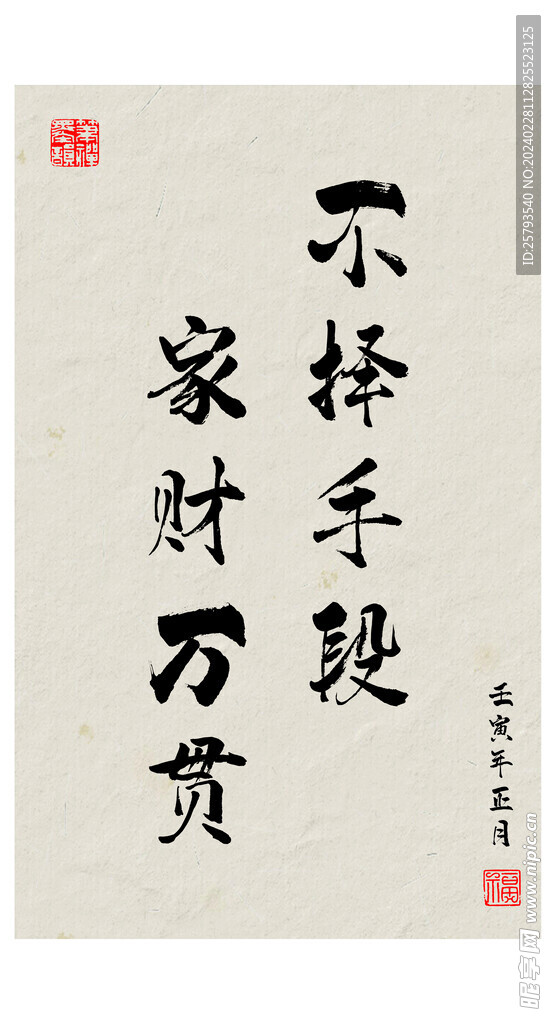 不择手段
家财万贯
壬寅年正月
福
ID:25793540 NO:20240228112825523125
昵享网 www.nipic.cn